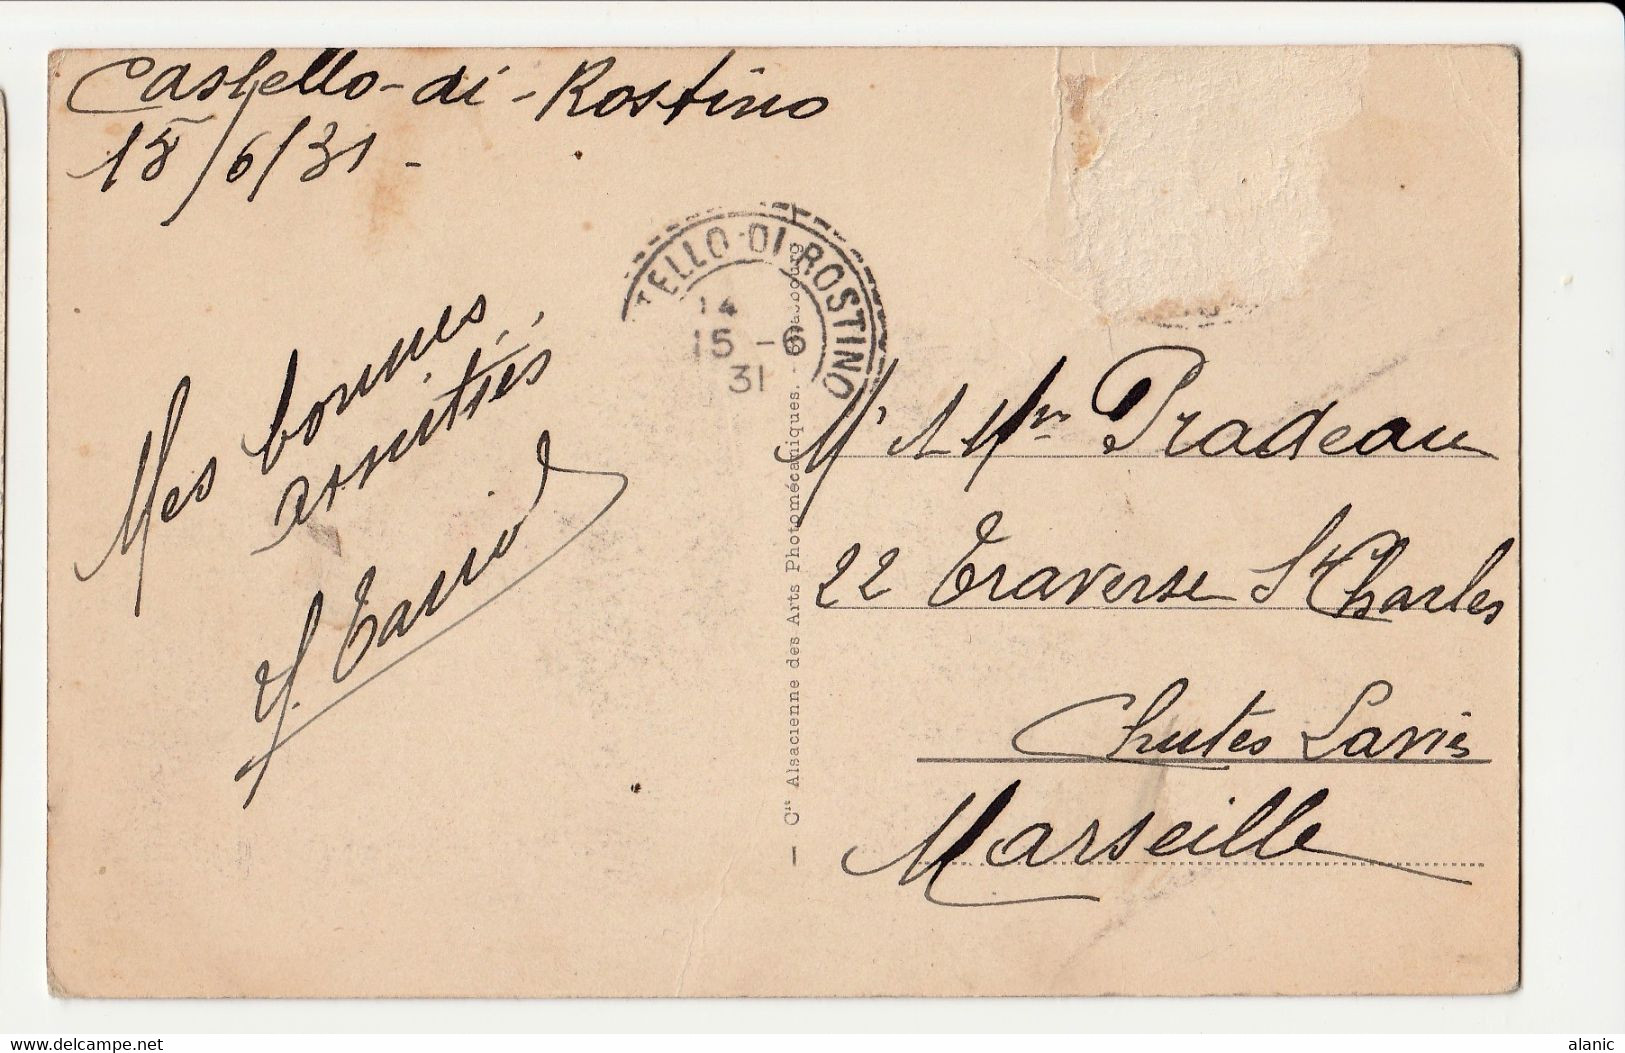 Castello-di-Rostino
15/6/31-
TELLO-DI ROSTINO
14
15-6
31
Mes bonnes
amitiés
Mr et Mme Pradeau
22 Traverse St Charles
Chutes Lavie
Marseille
— Cie Alsacienne des Arts Photomécaniques. - Strasbourg
delcampe.net
alanic